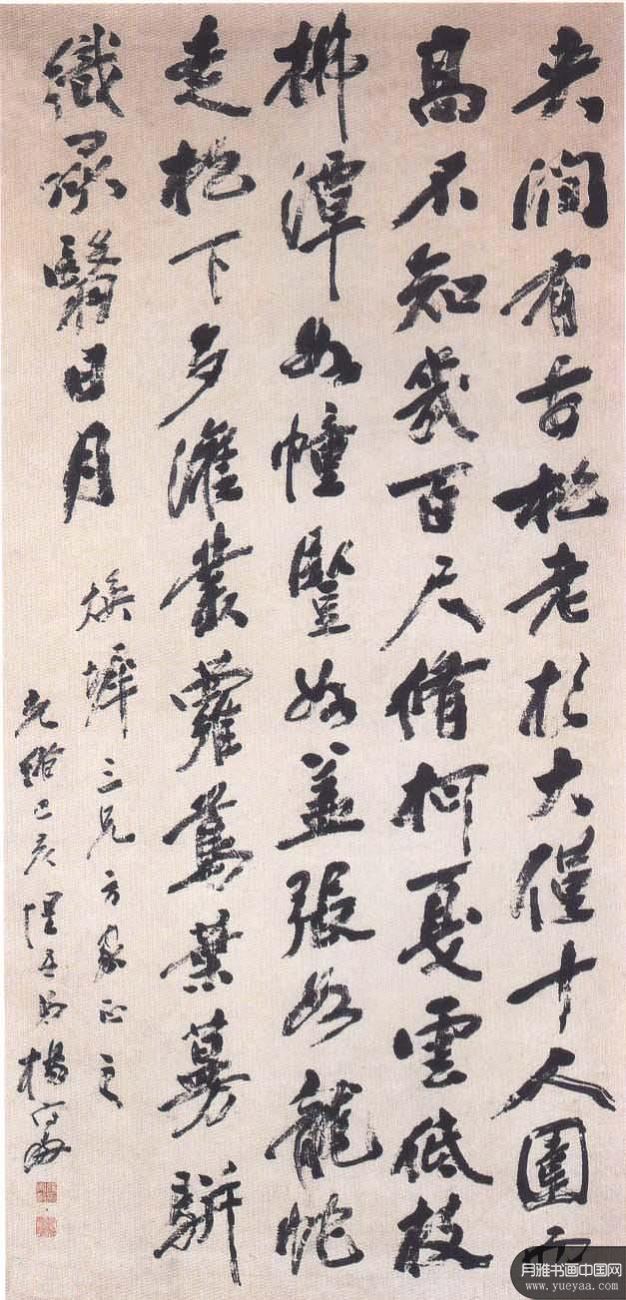 夾澗有古松老杉大僅十人圍而
高不知幾百尺脩柯戛雲低枝
拂潭如幢豎如蓋張如龍蛇
走松下多灌叢蘿蔦葉蔓駢
織承翳日月
煥三兄方家正之
光緒己亥惺吾弟楊守敬
月雅书画中国网
www.yueyaa.com